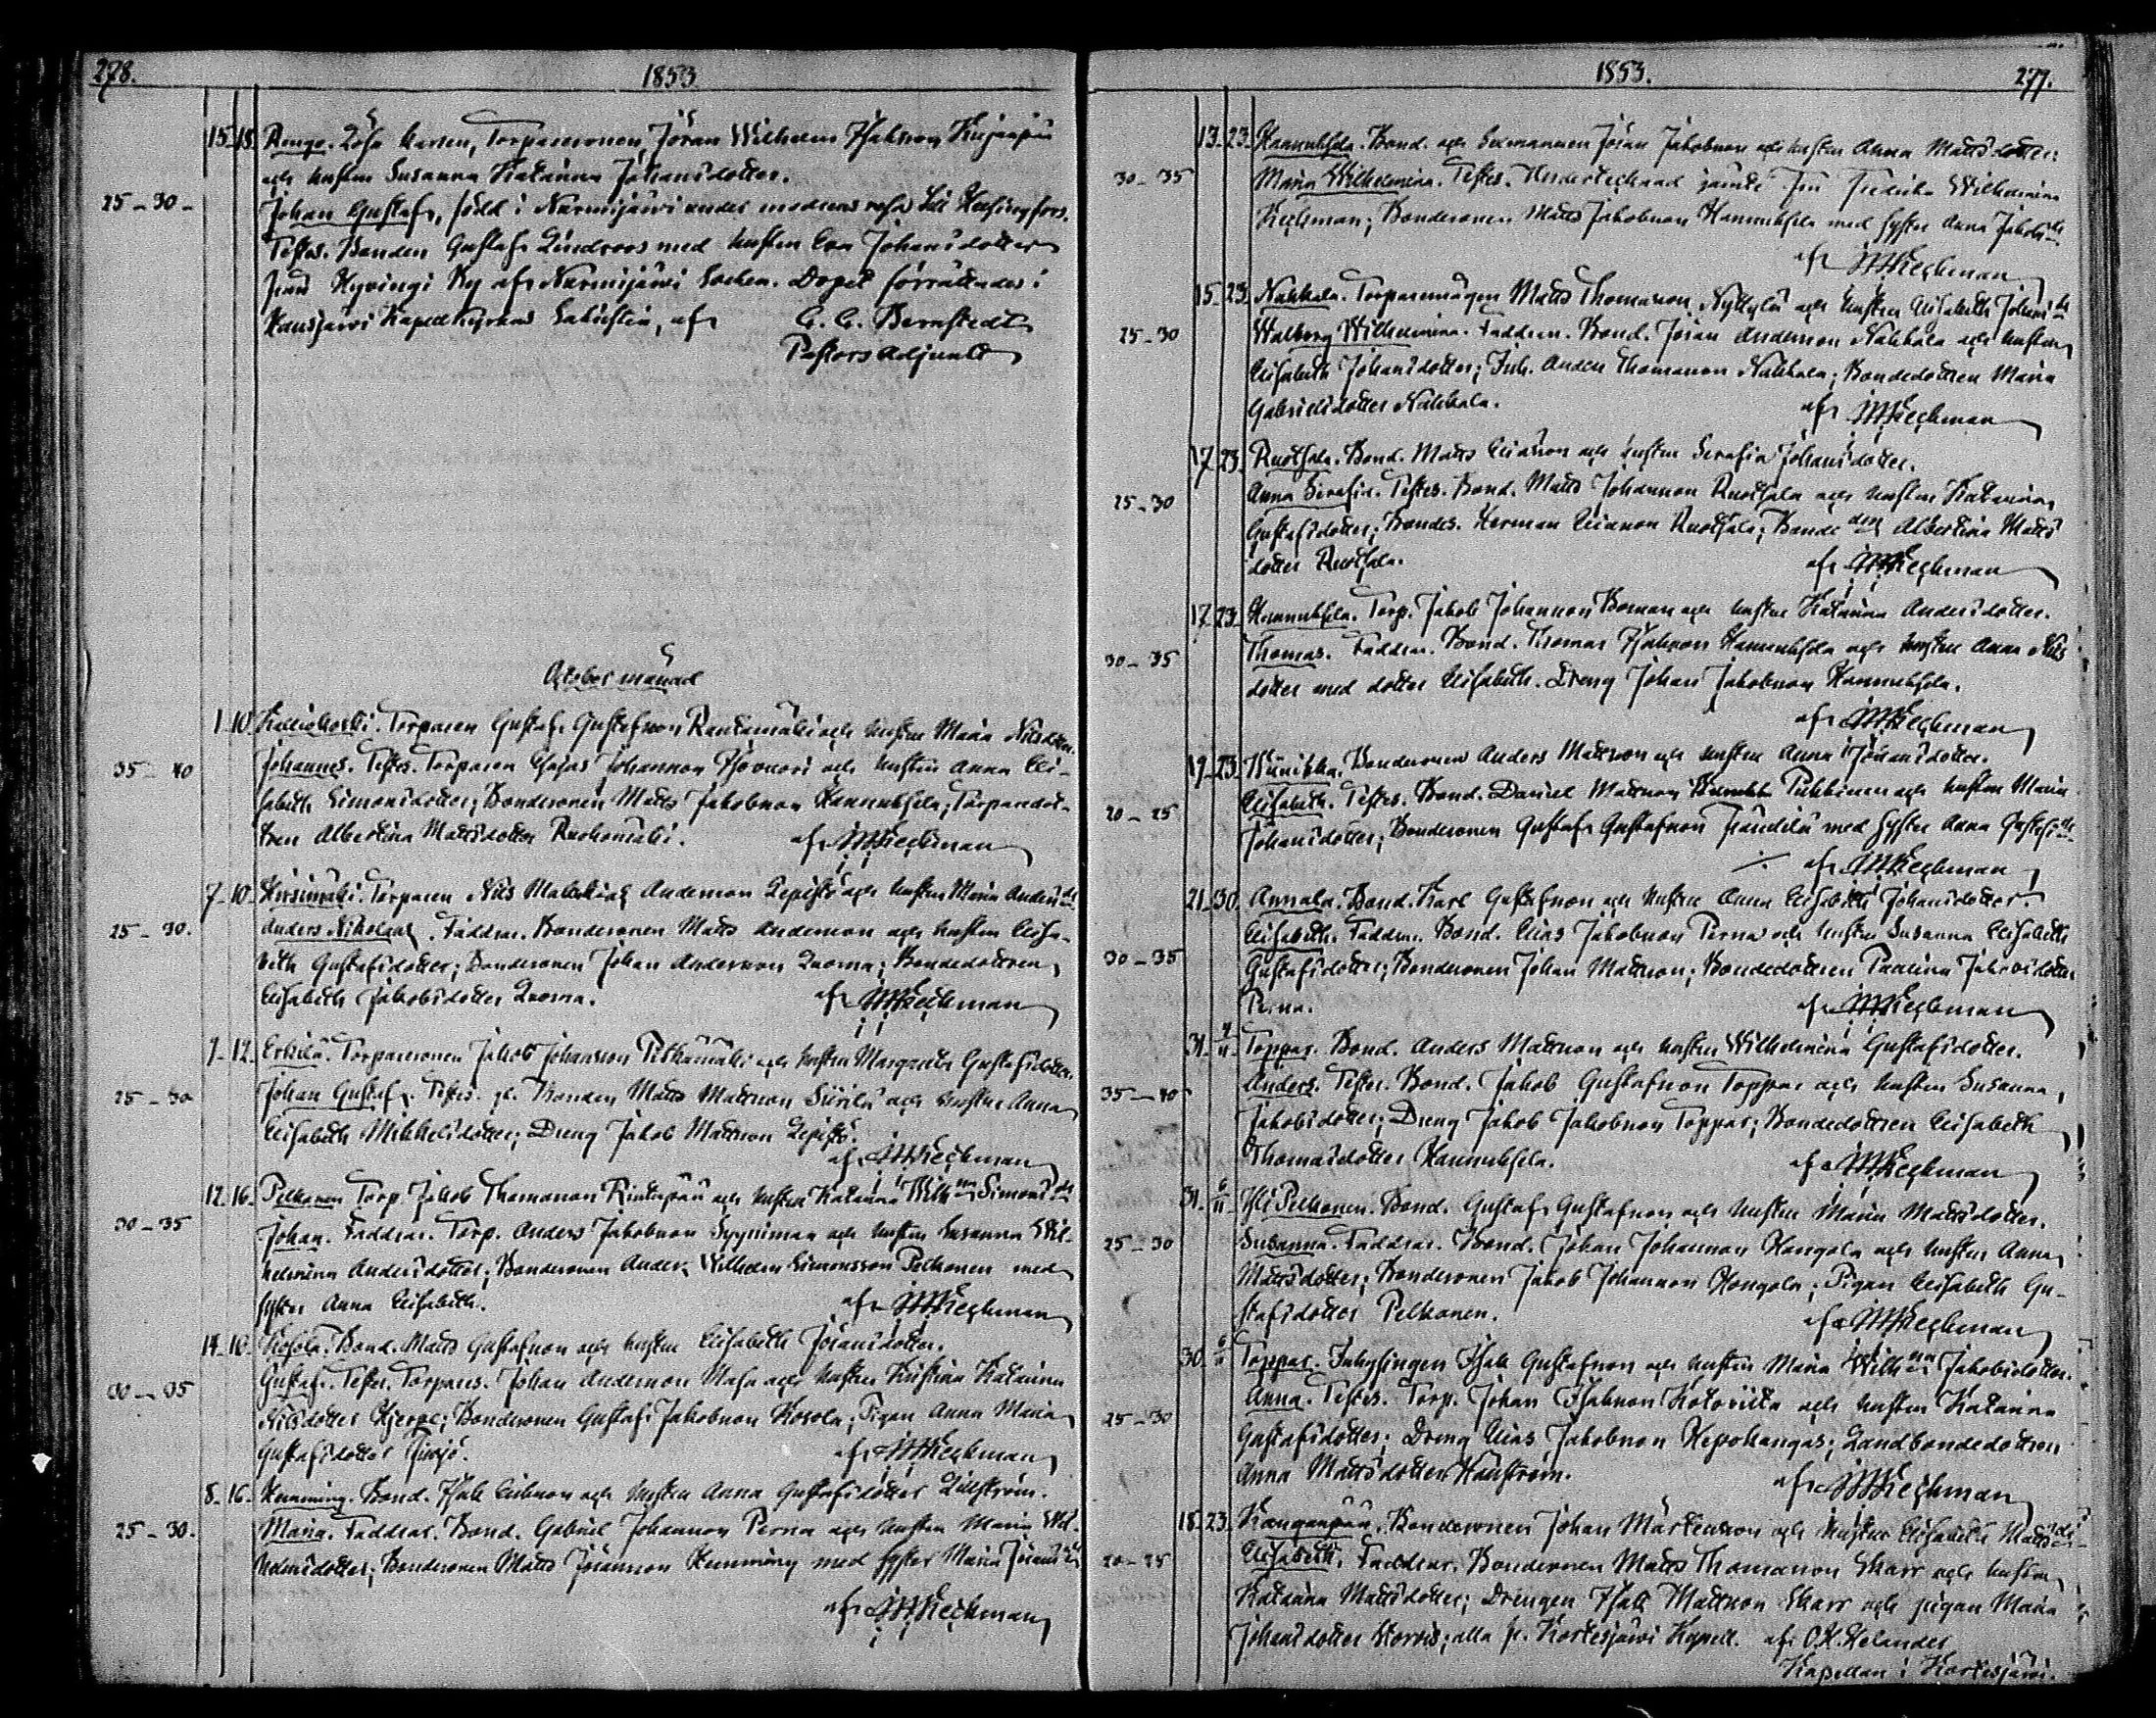 278.
1853
15. 18. Renge. Lösa karlen, Torparesonen Jöran Wilhelm Isaksson
och hustru Susanna Katarina Johansdotter.
25-30- Johan Gustaf, född i Nurmijärvi under modrens resa till Helsingfors.
Testes. Bonden Gustaf Lindroos med hustru Eva Johansdotter
från Hyvinge By af Nurmijärvi Socken. Dopet förrättades i
Hausjärvi Kapell Kyrkas Sakristia, af C. G. Bernstedt
Pastors Adjunkt
October månad
1. 10. Kalliokoski. Torparen Gustaf Gustafsson Rantamäki och hustru Maria Nilsdotter.
35-40 Johannes. Testes. Torparen Esajas Johansson och hustru Anna Eli-
sabeth Simonsdotter; Bondesonen Matts Jakobsson Hannuksela; Torparedot-
tren Albertina Mattsdotter Ruohomäki. af
7. 10. Hirsimäki. Torparen Nils Malakias Andersson Lepistö och hustru Maria Andersdr
25-30. Anders Nikolaas. Faddrar. Bondesonen Matts Andersson och hustru Elisa-
beth Gustafsdotter; Bondesonen Johan Andersson Luoma; Bondedottren
Elisabeth Jakobsdotter Luoma. af
7. 12. Erkilä. Torparesonen Jakob Johansson Pitkämäki och hustru Margreta Gustafsdotter.
25-30 Johan Gustaf. Testes. Bonden Matts Mattsson Siirilä och hustru Anna
Elisabeth Mikkelsdotter; Dreng Jakob Mattsson Lepistö.
af
12. 16. Pelkonen Torp. Jakob Thomasson och hustru Katarina Wilhna Simonsdr
30-35 Johan. Faddrar. Torp. Anders Jakobsson och hustru Susanna Wil-
helmina Andersdotter; Bondesonen Anders Wilhelm Simonsson Pelkonen med
syster Anna Elisabeth. af
14. 16. Kosola. Bond. Matts Gustafsson och hustru Elisabeth Jöransdotter.
30-35 Gustaf. Testes. Torpares. Johan Andersson och hustru Kristina Katarina
Nilsdotter Hjerpe; Bondesonen Gustaf Jakobsson Kosola; Pigan Anna Maria
Gustafsdotter af
8. 16. Hemming. Bond. Isak Eliasson och hustru Anna Gustafsdotter Lillström.
25-30. Maria. Faddrar. Bond. Gabriel Johansson Perna och hustru Maria Wil-
helmsdotter; Bondesonen Matts Jöransson Hemming med syster Maria Jöransdr
af
1853.
277.
13. 23. Hannuksela. Bond. och Sexmannen Jöran Jakobsson och hustru Anna Mattsdotter.
30-35 Maria Wilhelmina. Testes. Undertecknad jämte Fru Fredrika Wilhelmina
Bondesonen Matts Jakobsson Hannuksela med syster Anna Jakobsdr
af
15. 23. Nahkala. Torparemågen Matts Thomasson Nyttylä och hustru Elisabeth Johansdr
25-30 Walborg Wilhelmina. Faddrar. Bond. Jöran Andersson Nahkala och hustru
Elisabeth Johansdotter; Inh. Anders Thomasson Nahkala; Bondedottren Maria
Gabrielsdotter Nahkala. af
17. 23. Ruotsala. Bond. Matts Eliasson och hustru Serafia Johansdotter.
25-30 Anna Serafia. Testes. Bond. Matts Johansson Ruotsala och hustru Katarina
Gustafsdotter; Bondes. Herman Eliasson Ruotsala; Bondedn Albertina Matts
dotter Ruotsala. af
17. 23. Hannuksela. Torp. Jakob Johansson Boman och hustru Katarina Andersdotter.
30-35 Thomas. Faddrar. Bond. Thomas Isaksson Hannuksela och hustru Anna Nils
dotter med dotter Elisabeth. Dreng Johan Jakobsson Hannuksela.
af
19. 23. Wuniikka. Bondesonen Anders Mattsson och hustru Anna Jöransdotter.
20-25 Elisabeth. Testes. Bond. Daniel Mattsson Pukkinen och hustru Maria
Johansdotter; Bondesonen Gustaf Gustafsson Frändilä med syster Anna Gustafsdr
af
21. 30. Annala. Bond. Karl Gustafsson och hustru Anna Elisabeth Johansdotter.
30-35 Elisabeth. Faddrar. Bond. Elias Jakobsson Perna och hustru Susanna Elisabeth
Gustafsdotter; Bondesonen Johan Mattsson; Bondedottren Paulina Jakobsdotter
Perna. af
31. 4/11. Toppar. Bond. Anders Mattsson och hustru Wilhelmina Gustafsdotter.
35-40 Anders. Testes. Bond. Jakob Gustafsson Toppar och hustru Susanna
Jakobsdotter; Dreng Jakob Jakobsson Toppar; Bondedottren Elisabeth
Thomasdotter Hannuksela. af
31. 6/11. Yli Pelkonen. Bond. Gustaf Gustafsson och hustru Maria Mattsdotter.
25-30 Susanna. Faddrar. Bond. Johan Johansson Hongola och hustru Anna
Mattsdotter; Bondesonen Jakob Johansson Hongola; Pigan Elisabeth Gu-
stafsdotter Pelkonen. af
30. 6/11 Toppar. Inhysingen Isak Gustafsson och hustru Maria Wilhna Jakobsdotter.
25-30 Anna. Testes. Torp. Johan Isaksson Kotoviita och hustru Katarina
Gustafsdotter; Dreng Elias Jakobsson Hepokangas; Landbondedottren
Anna Mattsdotter af
18. 23. Kangaspää. Bondesonen Johan Mårtensson och hustru Elisabeth Mattsdr
20-25 Elisabeth. Faddrar. Bondesonen Matts Thomasson Skarr och hustru
Katarina Mattsdotter; Drengen Isak Mattsson Skarr och pigan Maria
Johansdotter alla fr. Kortesjärvi Kapell. af O. H. Helander
Kapellan i Kortesjärvi.